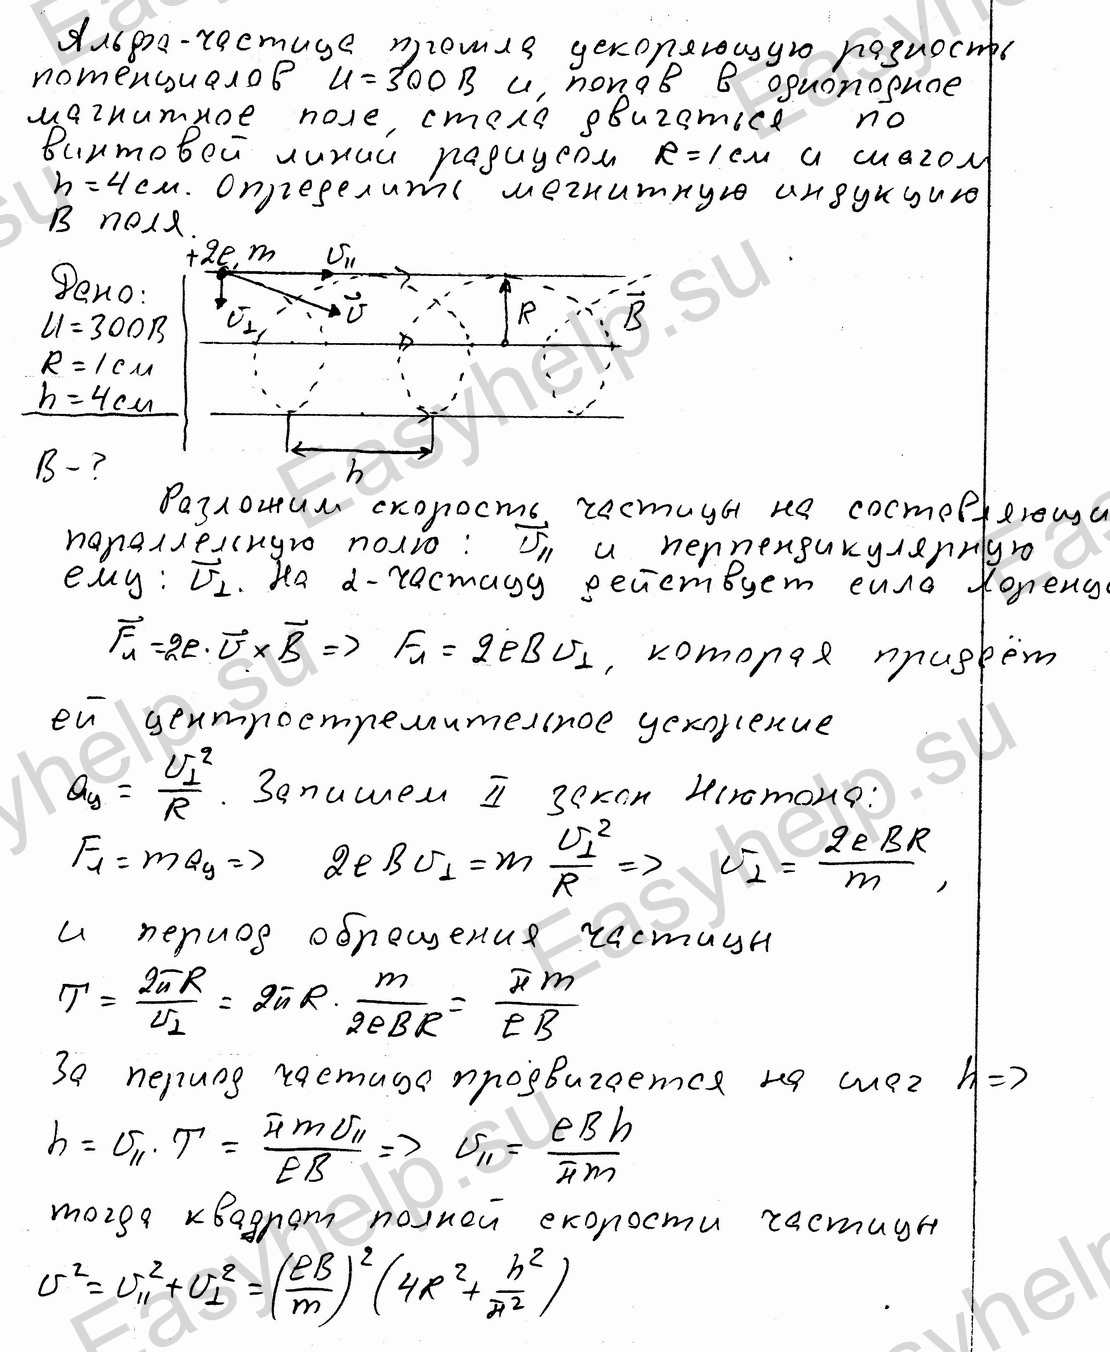 Альфа-частица прошла ускоряющую разность
потенциалов U=300В и, попав в однородное
магнитное поле, стала двигаться по
винтовой линии радиусом R=1см и шагом
h=4см. Определить магнитную индукцию
В поля.
+2e, m
υ∥
Дано:
U=300В
R=1см
h=4см
υ⊥
υ⃗
R
B⃗
h
В-?
Разложим скорость частицы на составляющи
параллельную полю: υ⃗∥ и перпендикулярную
ему: υ⃗⊥. На α-частицу действует сила Лоренца
F⃗л=2e·υ⃗×B⃗ => Fл=2eBυ⊥, которая придаёт
ей центростремительное ускорение
aц = υ⊥²/R. Запишем II закон Ньютона:
Fл=maц => 2eBυ⊥=m υ⊥²/R => υ⊥ = 2eBR/m,
и период обращения частицы
T = 2πR/υ⊥ = 2πR · m/2eBR = πm/eB
За период частица продвигается на шаг h =>
h = υ∥·T = πmυ∥/eB => υ∥ = eBh/πm
тогда квадрат полной скорости частицы
υ²=υ∥²+υ⊥²=(eB/m)²(4R²+h²/π²)
Easyhelp.su